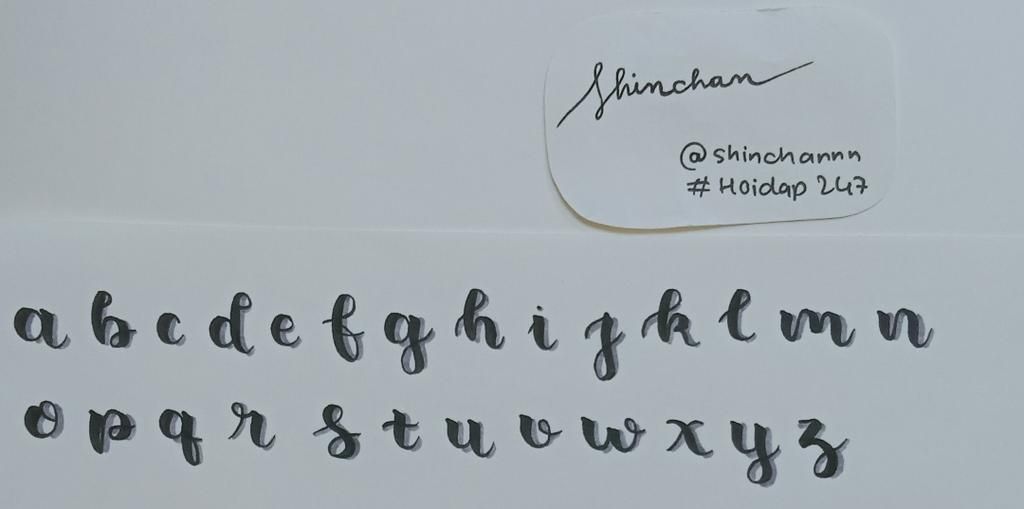 Shinchan
@shinchannn
# Hoidap 247
a b c d e f g h i j k l m n
o p q r s t u v w x y z